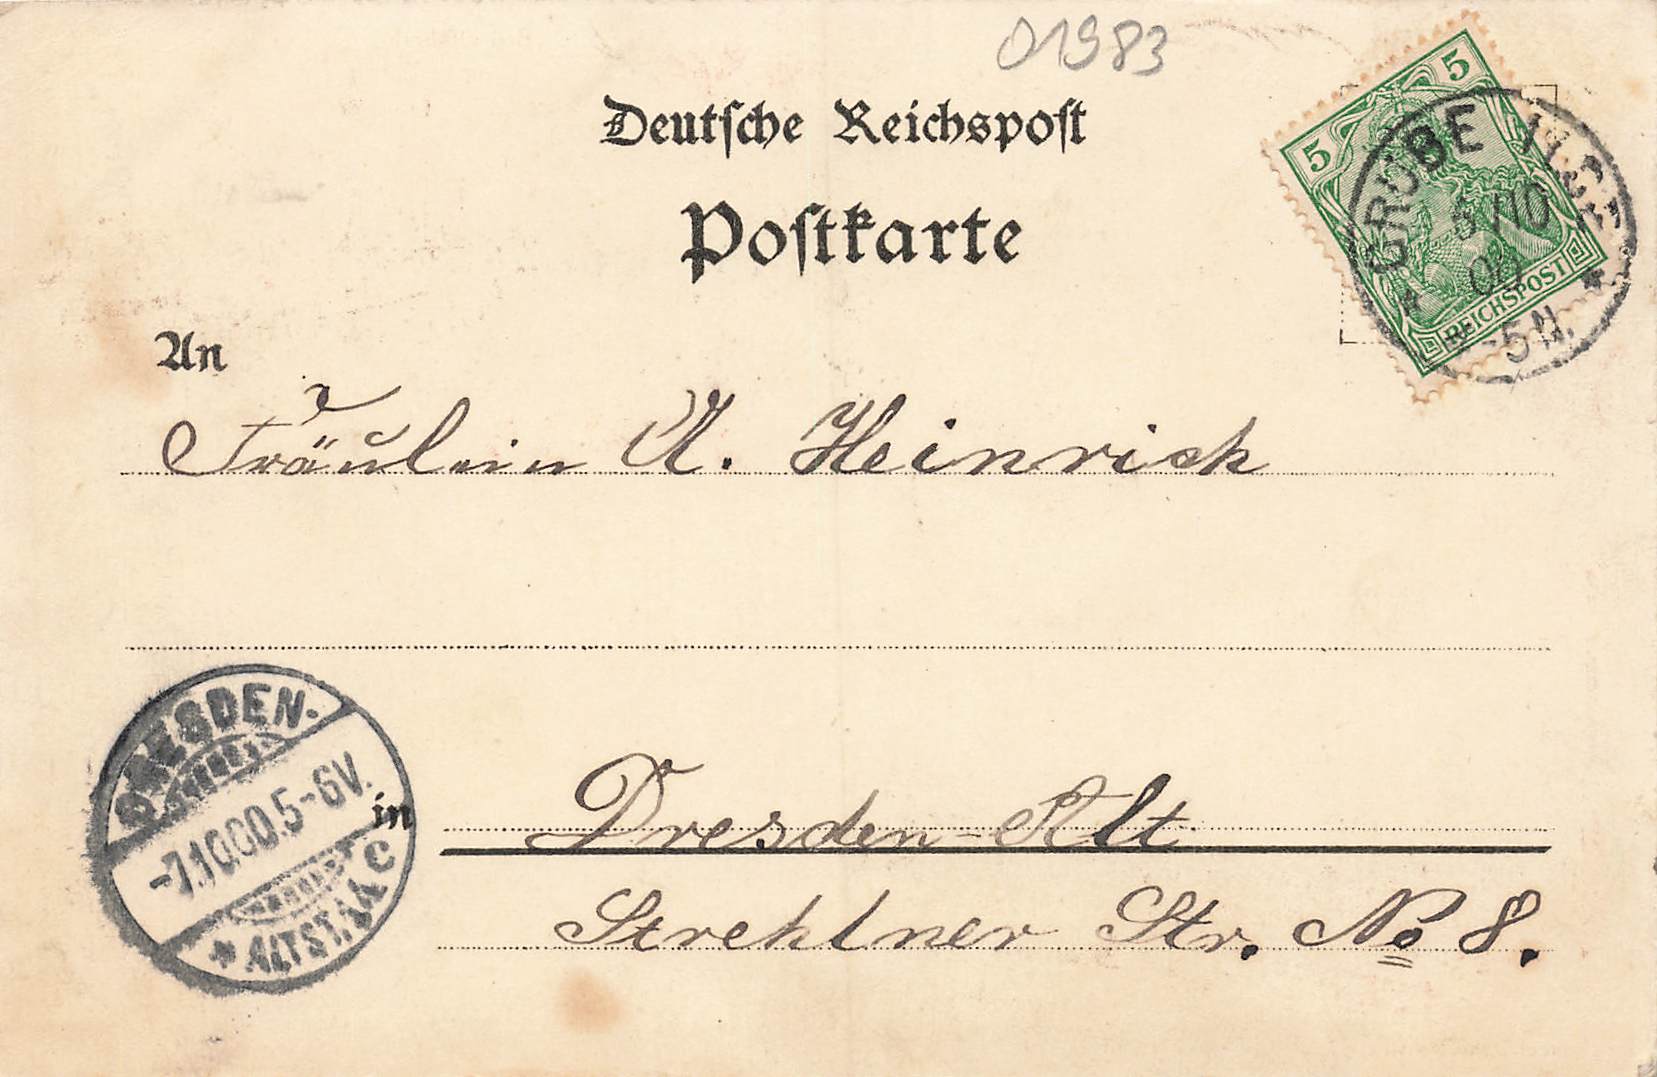 01983
Deutsche Reichspost
Postkarte
5 5
REICHSPOST
GRUBE ILSE
5/10
00
4-5N.
An
Fräulein A. Heinrich
DRESDEN-
-7.10.00.5-6V.
* ALTST. 1 C
in Dresden-Alt
Strehlner Str. No 8.